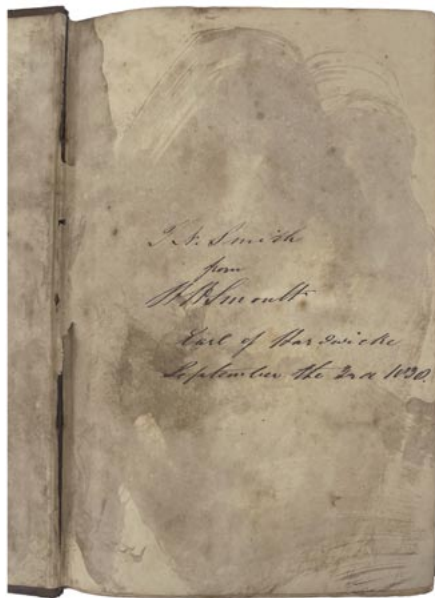 T. N. Smith
from
W. W. Smoult
Earl of Hardwicke
September the 2nd 1830.